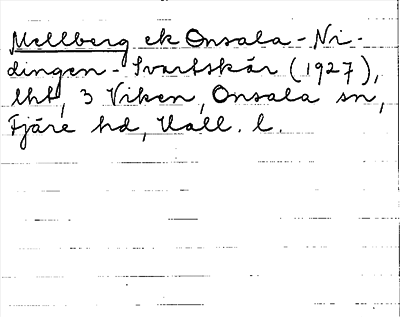 Mellberg ek Onsala-Ni-
dingen-Svartskär (1927),
lht, 3 Viken, Onsala sn,
Fjäre hd, Hall. l.